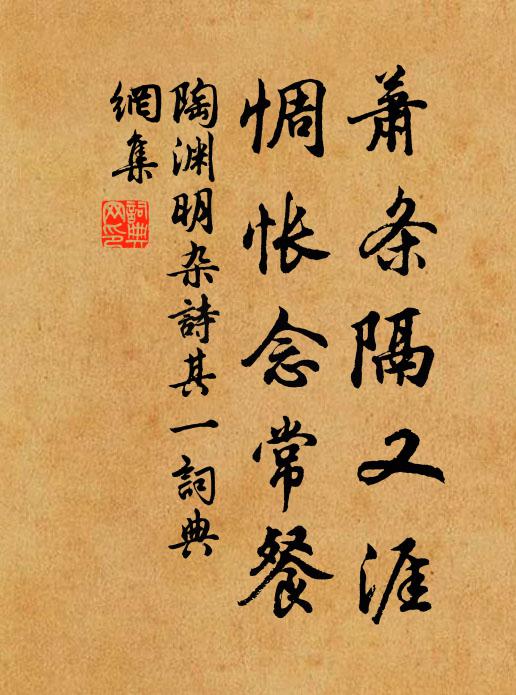 蕭条隔又涯
惆怅念常餐
陶渊明杂詩其一詞典
網集
詞典
网印